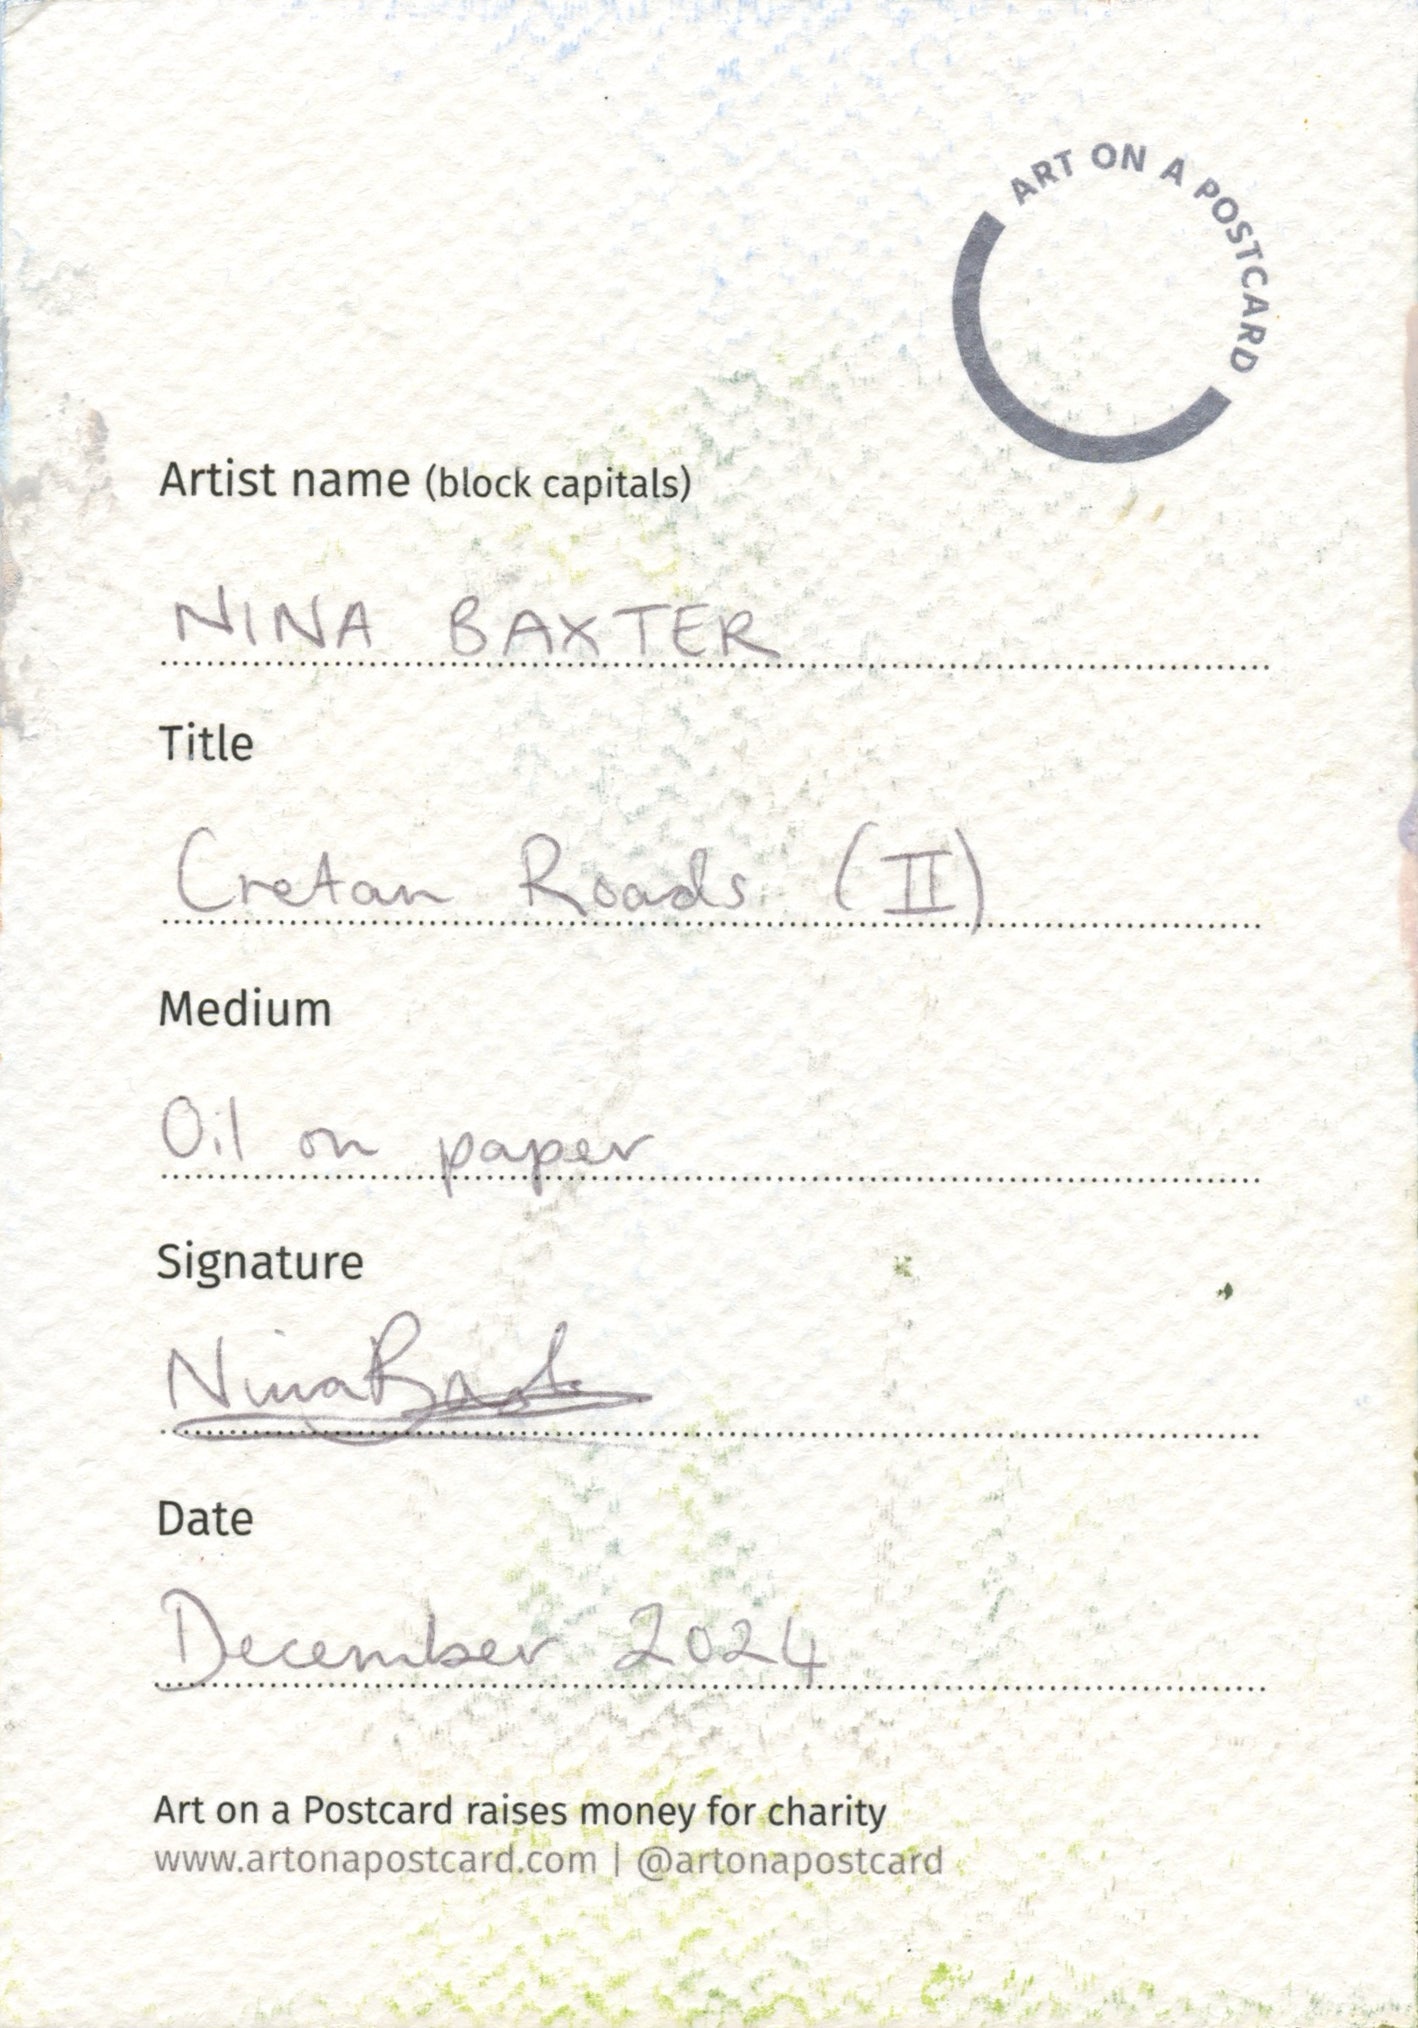 ART ON A POSTCARD
Artist name (block capitals)
NINA BAXTER
Title
Cretan Roads (II)
Medium
Oil on paper
Signature
Nina Baxter
Date
December 2024
Art on a Postcard raises money for charity
www.artonapostcard.com | @artonapostcard